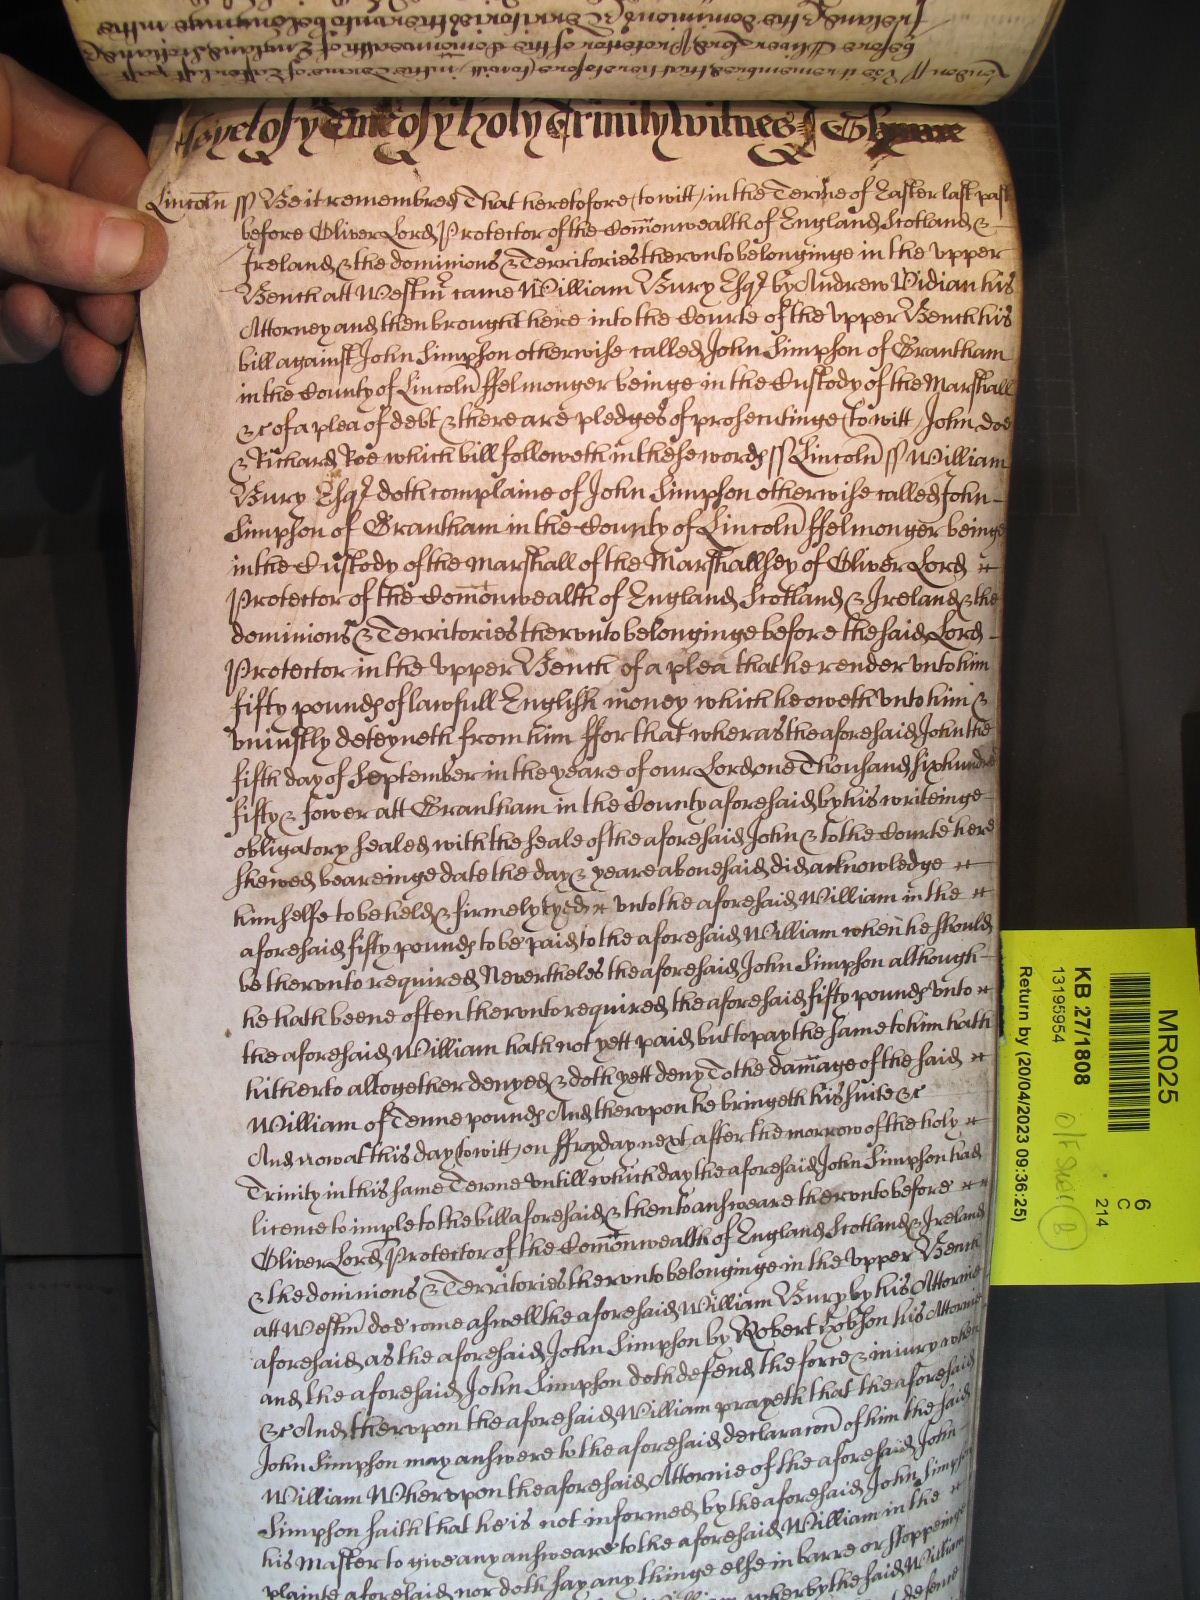 London ss Be it remembred that heretofore (to witt) in the Terme of Easter last past
before Oliver Lord Protector of the Com̃onwealth of England Scotland &
Ireland & the dominions & Territories therunto belonginge in the
yet of ye Tme of ye holy Trinity Witnes
Lincoln̄ ss Be it remembred That heretofore (to witt) in the Terme of Easter last past
before Oliver Lord Protector of the Com̃onwealth of England Scotland &
Ireland & the dominions & Territories therunto belonginge in the upper
Bench att Westm̄ came William Bury Esqr by Andrew Vidian his
Attorney and then brought here into the Courte of the upper Bench his
bill against John Simpson otherwise called John Simpson of Grantham
in the County of Lincoln̄ ffelmonger beinge in the Custody of the Marshall
&c of a plea of debt & there are pledges of prosecutinge (to witt) John doe
& Richard Roe which bill followeth in these words ss Lincoln̄ ss William
Bury Esqr doth complaine of John Simpson otherwise called John
Simpson of Grantham in the County of Lincoln̄ ffelmonger beinge
in the Custody of the Marshall of the Marshallsey of Oliver Lord
Protector of the Com̃onwealth of England Scotland & Ireland & the
dominions & Territories therunto belonginge before the said Lord
Protector in the upper Bench of a plea that he render unto him
fifty pounds of lawfull English money which he oweth unto him &
uniustly deteyneth from him ffor that wheras the aforesaid John the
fifth day of September in the yeare of our Lord one Thousand six hundred
fifty & fower att Grantham in the County aforesaid by his writeinge
obligatory sealed with the seale of the aforesaid John & to the Courte here
shewed beareinge date the day & yeare abovesaid did acknowledge
himselfe to be held & firmely tyed unto the aforesaid William in the
aforesaid fifty pounds to be paid to the aforesaid William when he should
be therunto required Nevertheles the aforesaid John Simpson although
he hath beene often therunto required the aforesaid fifty pounds unto
the aforesaid William hath not yett paid but to pay the same to him hath
hitherto altogether denyed & doth yett deny To the dam̃age of the said
William of Tenne pounds And therupon he bringeth his suite &c
And now at this day (to witt) on ffryday next after the morrow of the holy
Trinity in this same Terme untill which day the aforesaid John Simpson had
licence to imple to the bill aforesaid & then to answeare therunto before
Oliver Lord Protector of the Com̃onwealth of England Scotland & Ireland
& the dominions & Territories therunto belonginge in the upper Bench
att Westm̄ doe come aswell the aforesaid William Bury by his Attornie
aforesaid as the aforesaid John Simpson by Robert Hobson his Attornie
and the aforesaid John Simpson doth defend the force & iniury when
&c And therupon the aforesaid William prayeth that the aforesaid
John Simpson may answere to the aforesaid declaracon̄ of him the said
William Wherupon the aforesaid Attornie of the aforesaid John
Simpson saith that he is not informed by the aforesaid John Simpson
his Master to give any answeare to the aforesaid William in the
plainte aforesaid nor doth say any thinge else in barre or stoppeinge
William wherby the said William
defence
MR025
6
C
214
KB 27/1808
13195954
Return by (20/04/2023 09:36:25)